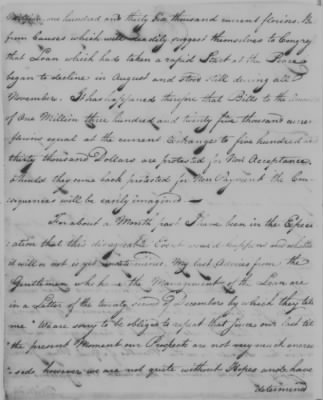 Million one hundred and thirty six thousand current florins. But
from Causes which will readily suggest themselves to Congress
that Loan which had taken a rapid Start at the Peace
began to decline in August and stood still during all
November. It has happened therefore that Bills to the Amount
of One Million three hundred and twenty five thousand
florins equal at the current Exchange to five hundred and
thirty thousand Dollars are protested for Non Acceptance
Should they come back protested for Non Payment the Con
sequences will be easily imagined —
For about a Month past I have been in the Expec
tation that this disagreeable Event would happen and whether
it will or not is yet My last Advices from the
Gentlemen who have the Management of the Loan are
in a Letter of the twenty second of December by which they tell
me "We are sorry to be obliged to repeat that since our last till
the present Moment our Prospects are not very much encrea
sed, however we are not quite without Hopes and have
determined